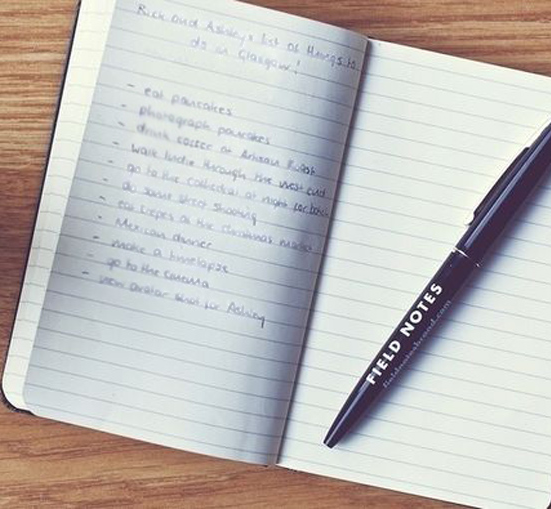 Rick and Ashley's list of things to
do in Glasgow!
- eat pancakes
- photograph pancakes
- drink coffee at Artisan Roast
- walk through the west end
- go to the cathedral at night for
- do some street shooting
- eat crepes at the christmas market
- Mexican dinner
- make a timelapse
- go to the cinema
- new avatar shot for Ashley
FIELD NOTES
fieldnotesbrand.com